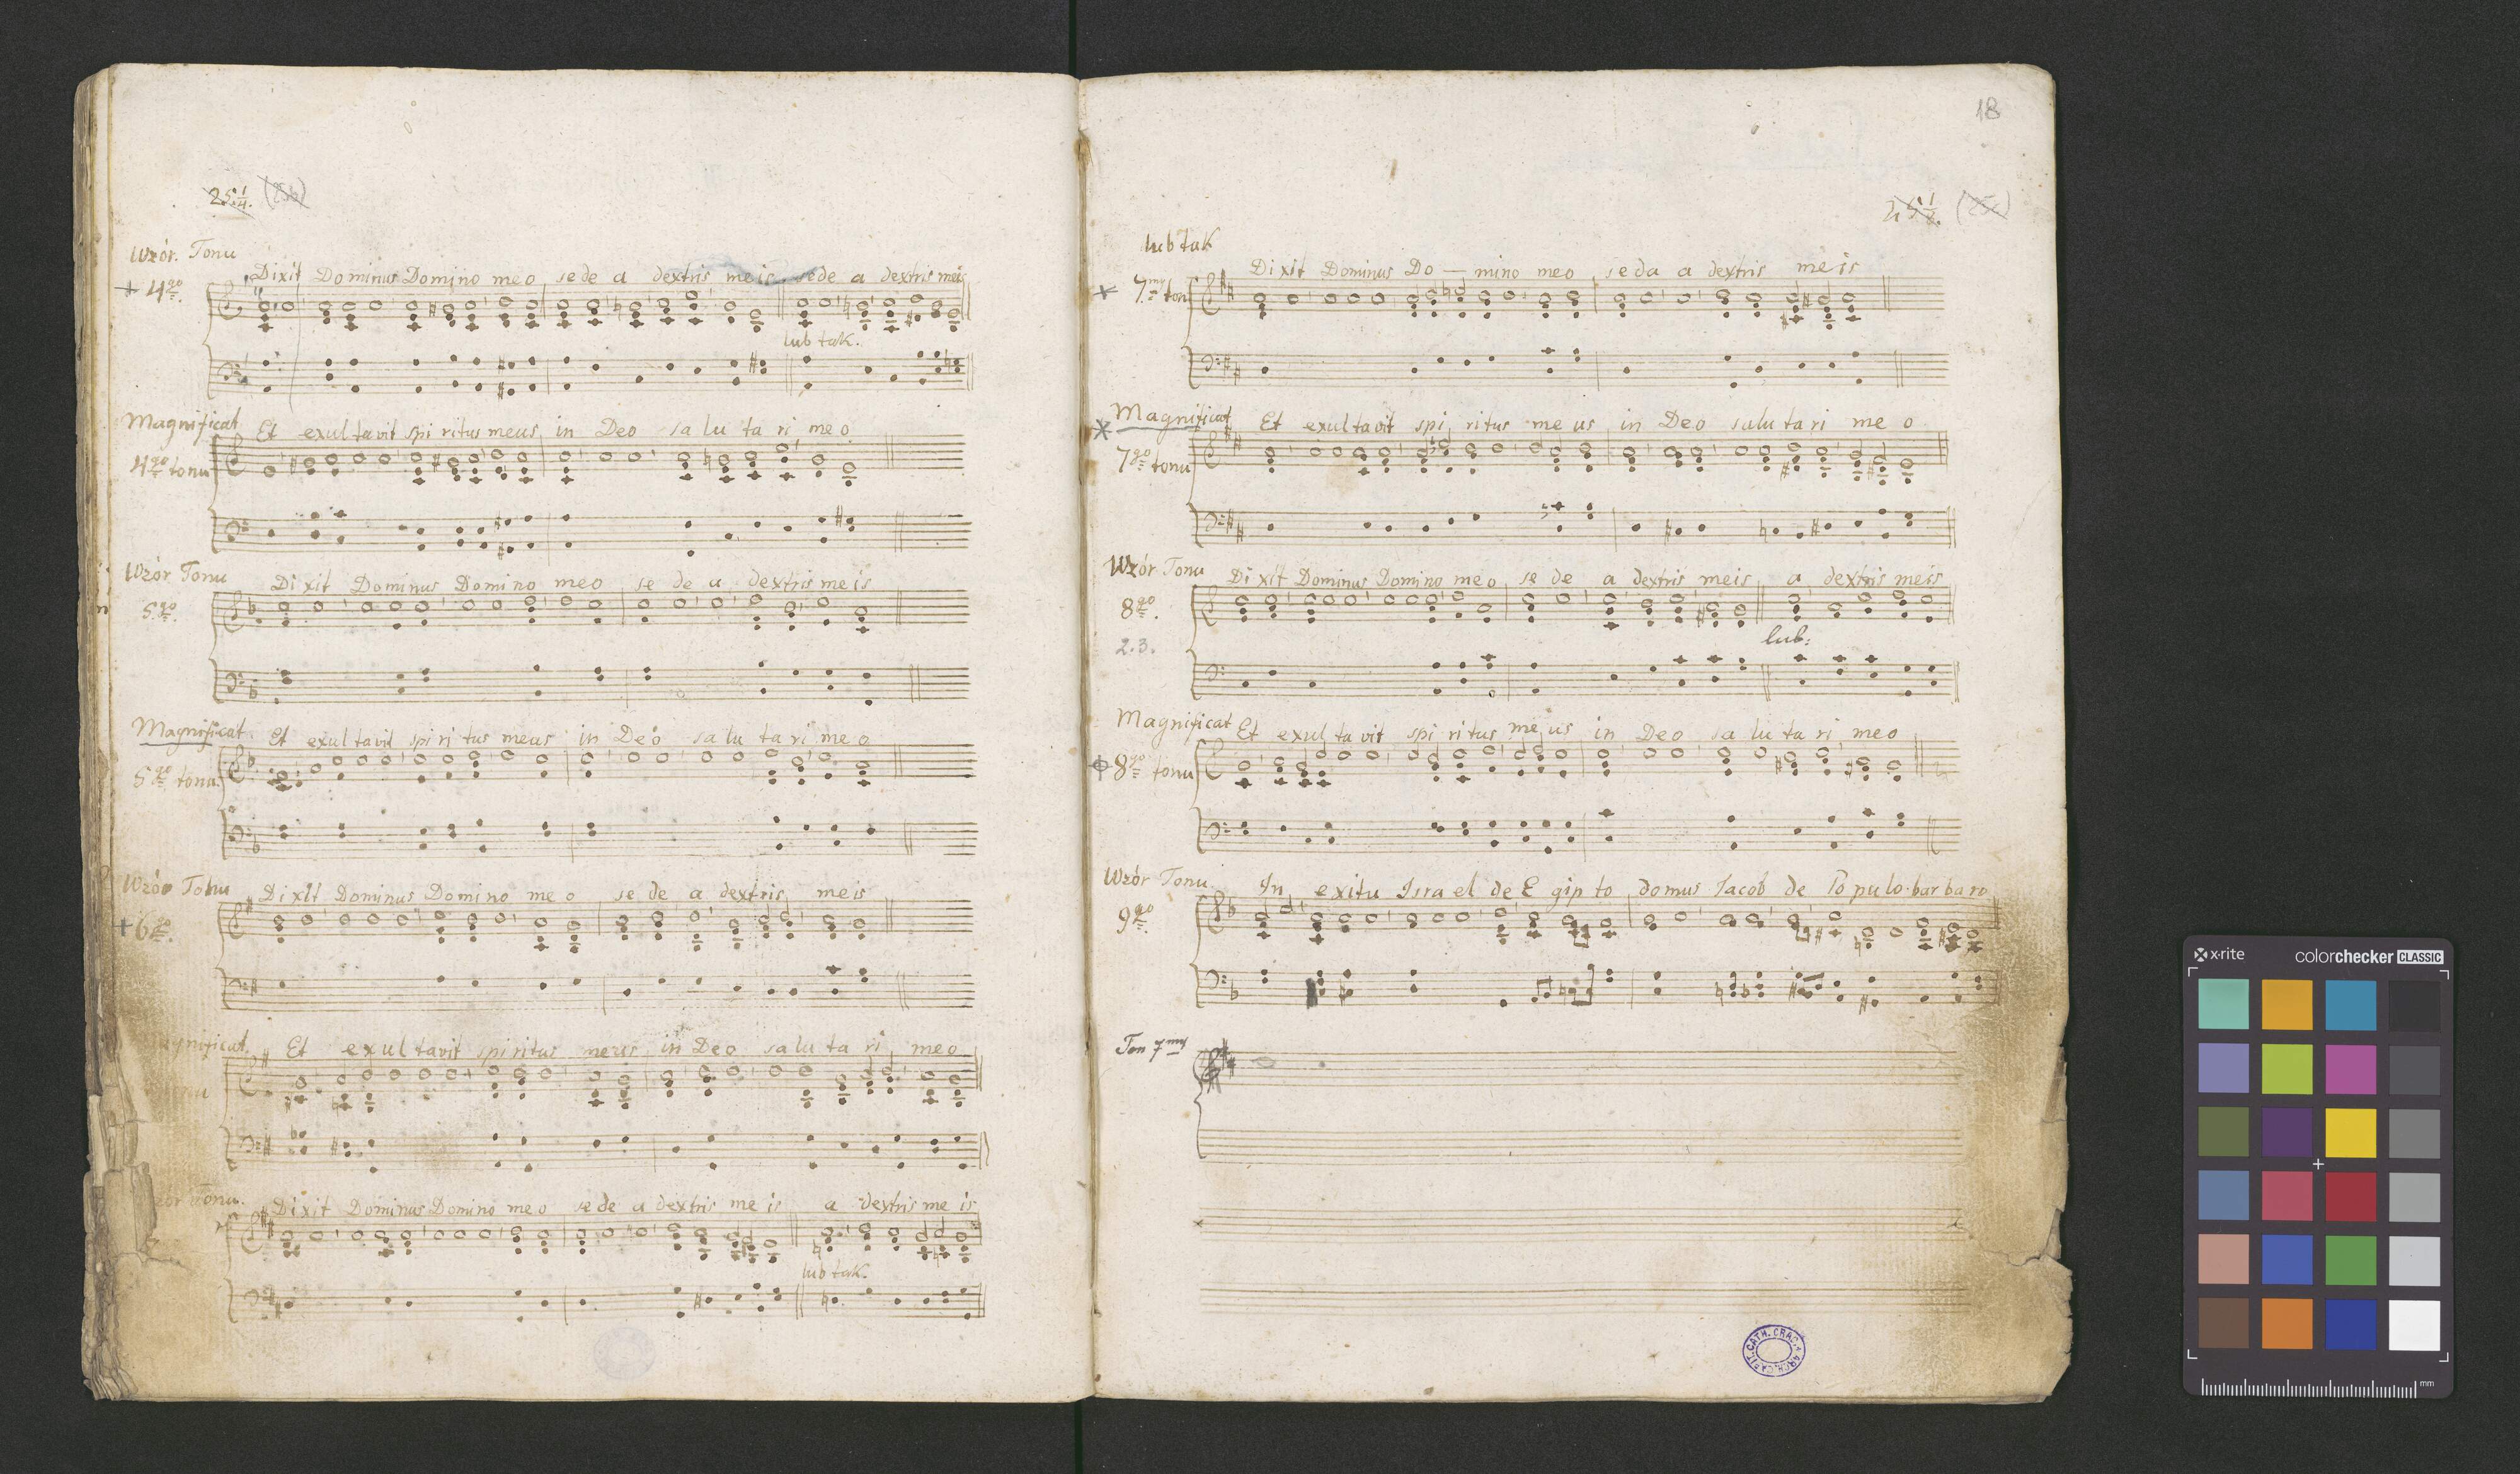 25 1/4. (25b)
Wzór. Tonu
Dixit Dominus Domino meo sede a dextris meis sede a dextris meis
+ 4go
lub tak.
Magnificat
Et exultavit spiritus meus in Deo salutari meo
4go tonu
Wzór Tonu
Dixit Dominus Domino meo sede a dextris meis
5go.
Magnificat
Et exultavit spiritus meus in Deo salutari meo
5go tonu
Wzór Tonu
Dixit Dominus Domino meo sede a dextris meis
+ 6go.
Et exultavit spiritus meus in Deo salutari meo
Tonu.
Dixit Dominus Domino meo sede a dextris meis a dextris meis
lub tak.
18
lub tak
Dixit Dominus Do — mino meo seda a dextris meis
7my ton
Magnificat
Et exultavit spiritus meus in Deo salutari meo
7go tonu
Wzór Tonu
Dixit Dominus Domino meo sede a dextris meis a dextris meis
8go.
2.3.
lub:
Magnificat
Et exultavit spiritus meus in Deo salutari meo
8go tonu
Wzór Tonu
In exitu Israel de Egipto domus Jacob de Populo barbaro
9go.
Ton 7my
x-rite colorchecker CLASSIC
mm